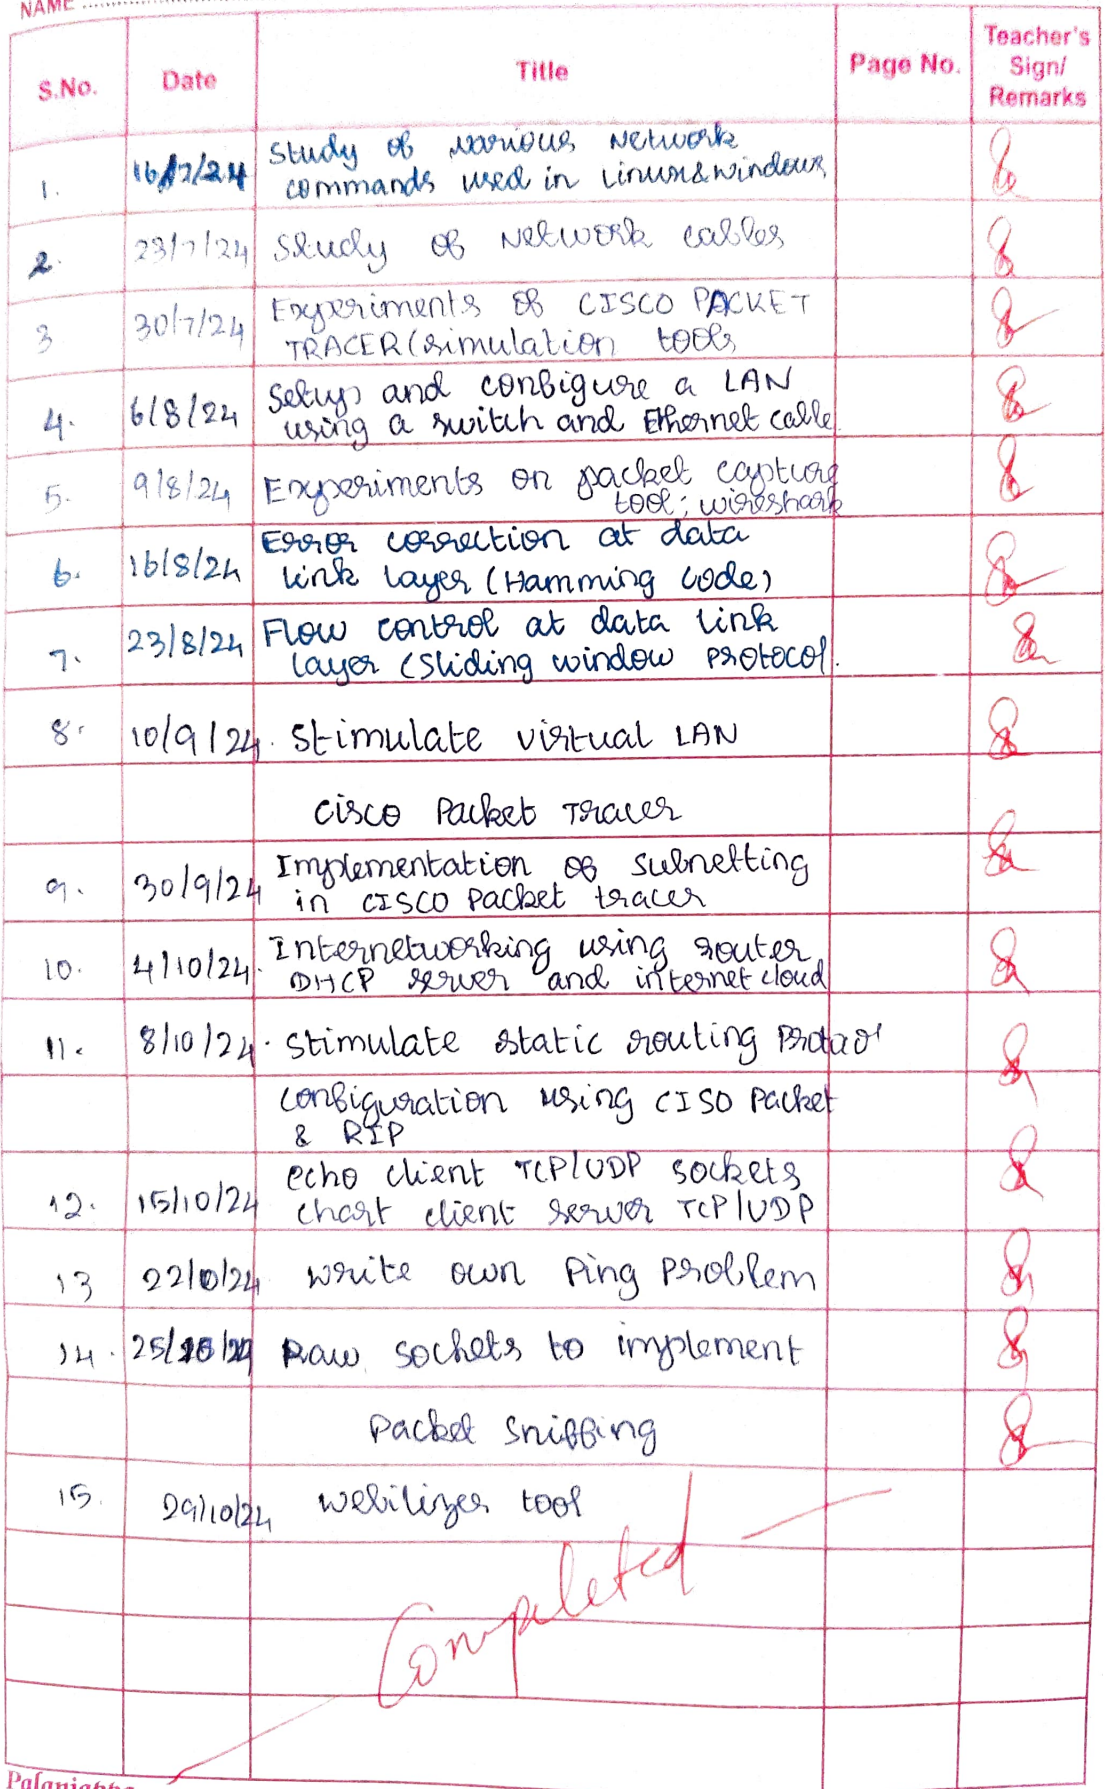 NAME
S.No. Date Title Page No. Teacher's Sign/ Remarks
1. 16/7/24 Study of various Network
commands used in Linux & windows
2. 23/7/24 Study of Network cables
3 30/7/24 Experiments of CISCO PACKET
TRACER (simulation tools
4. 6/8/24 Setup and configure a LAN
using a switch and Ethernet cable
5. 9/8/24 Experiments on packet capture
tool; wireshark
6. 16/8/24 Error correction at data
link layer (Hamming code)
7. 23/8/24 Flow control at data link
layer (Sliding window protocol.
8. 10/9/24. Stimulate virtual LAN
Cisco Packet Tracer
9. 30/9/24 Implementation of subnetting
in CISCO Packet tracer
10. 4/10/24. Internetworking using router
DHCP server and internet cloud
11. 8/10/24. Stimulate static routing
configuration using CISO Packet
& RIP
12. 15/10/24 echo client TCP/UDP sockets
chart client server TCP/UDP
13 22/0/24 write own Ping Problem
14. 25/10/24 Raw sockets to implement
Packet Sniffing
15. 29/10/24 Webilizer tool
Completed